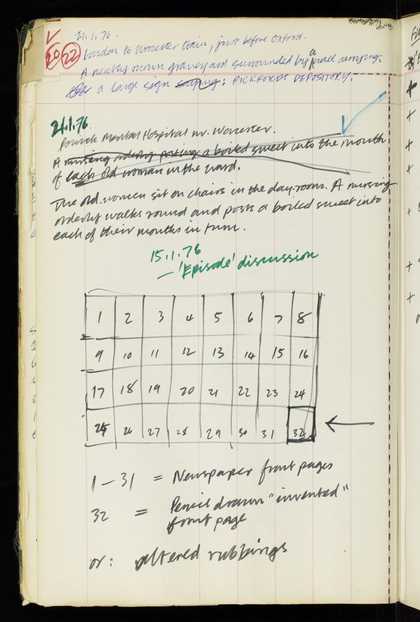 21.1.76.
20 22
London to Worcester train, just before Oxford.
A nearby ocean graveyard surrounded by a
a large sign : PICKFORDS DEPOSITORY.
21.1.76.
Powick Mental Hospital nr. Worcester.
A nursing orderly posting a boiled sweet into the mouth
of each old woman in the ward.
The old women sit on chairs in the day room. A nursing
orderly walks round and posts a boiled sweet into
each of their mouths in turn.
15.1.76
– 'Episode' discussion
1 2 3 4 5 6 7 8
9 10 11 12 13 14 15 16
17 18 19 20 21 22 23 24
25 26 27 28 29 30 31 32
1–31 = Newspaper front pages
32 = Pencil drawn "invented"
front page
or: altered rubbings